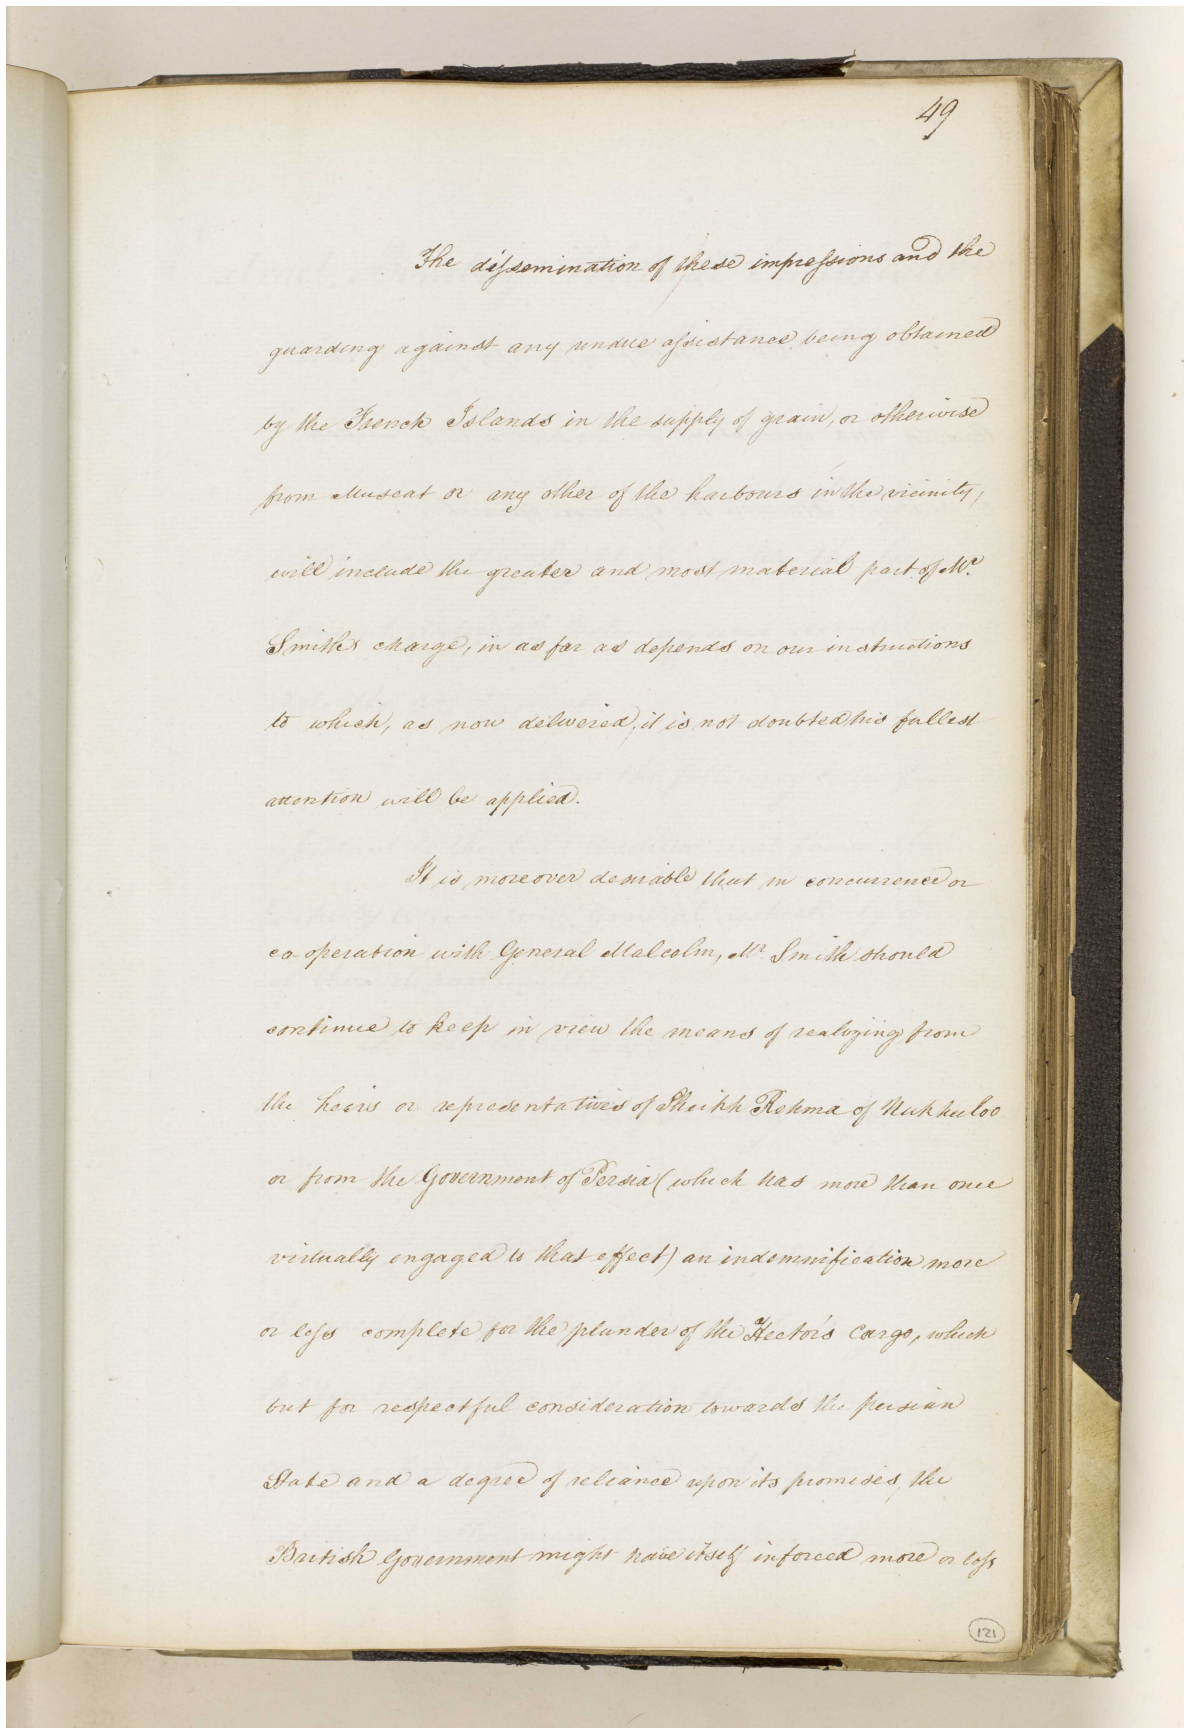 49
The dissemination of these impressions and the
guarding against any undue assistance being obtained
by the French Islands in the supply of grain, or otherwise
from Muscat or any other of the harbours in the vicinity,
will include the greater and most material part of Mr.
Smith's charge, in as far as depends on our instructions
to which, as now delivered, it is not doubted his fullest
attention will be applied.
It is moreover desirable that in concurrence or
co-operation with General Malcolm, Mr Smith should
continue to keep in view the means of realizing from
the heirs or representatives of Sheikh Rahma of Nukheeloo
or from the Government of Persia (which has more than once
virtually engaged to that effect) an indemnification more
or less complete for the plunder of the Hector's Cargo, which
but for respectful consideration towards the persian
State and a degree of reliance upon its promises, the
British Government might have itself inforced more or less
121